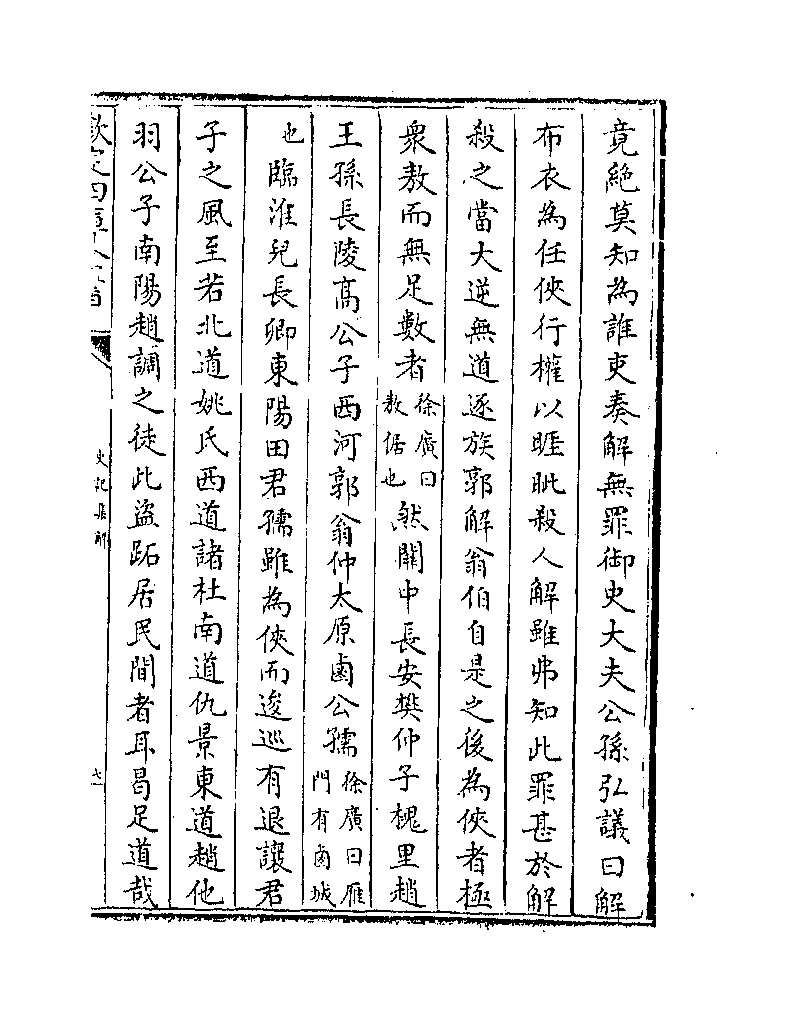 竟絶莫知為誰吏奏解無罪御史大夫公孫弘議曰解
布衣為任俠行權以睚眦殺人解雖弗知此罪甚於解
殺之當大逆無道遂族郭解翁伯自是之後為俠者極
衆敖而無足數者徐廣曰敖倨也然關中長安樊仲子槐里趙
王孫長陵髙公子西河郭翁仲太原鹵公孺徐廣曰雁門有鹵城
也臨淮兒長卿東陽田君孺雖為俠而逡巡有退讓君
子之風至若北道姚氏西道諸杜南道仇景東道趙他
羽公子南陽趙調之徒此盜跖居民間者耳曷足道哉
史記集解
七